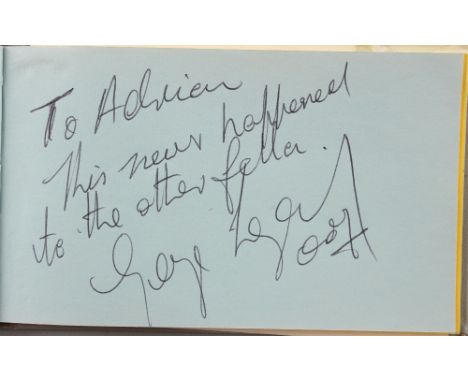 To Adrian
This never happened
to the other fella.
George Lazenby
007